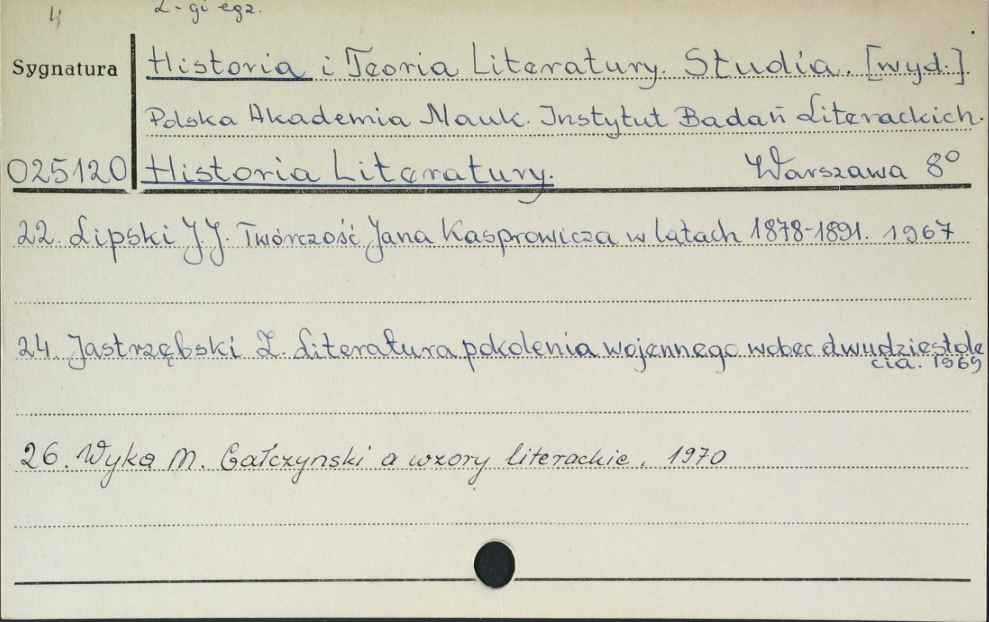 4
2-gi egz.
Sygnatura
Historia i Teoria Literatury. Studia. [wyd.]
Polska Akademia Nauk. Instytut Badań Literackich.
025120 Historia Literatury. Warszawa 8°
22. Lipski J.J. Twórczość Jana Kasprowicza w latach 1878-1891. 1967
24. Jastrzębski Z. Literatura pokolenia wojennego wobec dwudziestole
cia. 1969
26. Wyka M. Gałczynski a wzory literackie. 1970